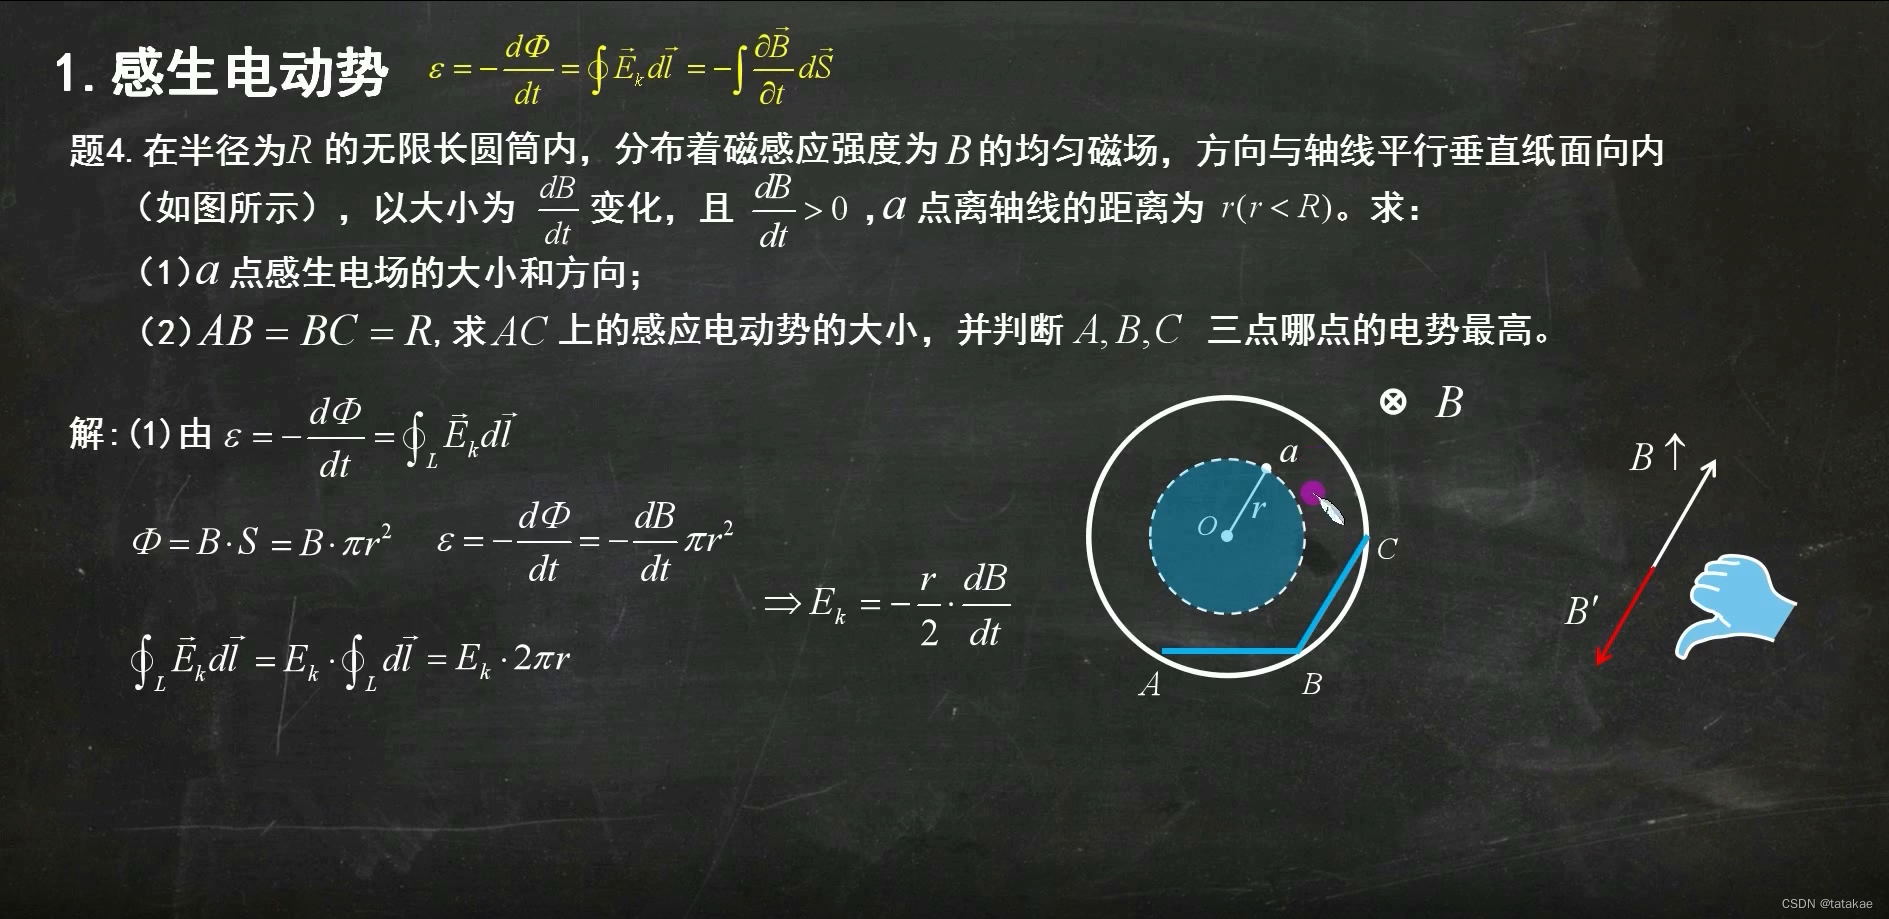 1.感生电动势 ε = -dΦ/dt = ∮E⃗_k dl⃗ = -∫∂B⃗/∂t dS⃗
题4.在半径为R的无限长圆筒内，分布着磁感应强度为B的均匀磁场，方向与轴线平行垂直纸面向内
（如图所示），以大小为 dB/dt 变化，且 dB/dt > 0 ,a 点离轴线的距离为 r(r < R)。求：
(1)a 点感生电场的大小和方向；
(2)AB = BC = R,求AC 上的感应电动势的大小，并判断 A,B,C 三点哪点的电势最高。
解:(1)由 ε = -dΦ/dt = ∮_L E⃗_k dl⃗
Φ = B·S = B·πr² ε = -dΦ/dt = -dB/dt πr²
⇒ E_k = -r/2 · dB/dt
∮_L E⃗_k dl⃗ = E_k·∮_L dl⃗ = E_k·2πr
⊗ B
a
r
O
C
A
B
B↑
B′
CSDN @tatakae